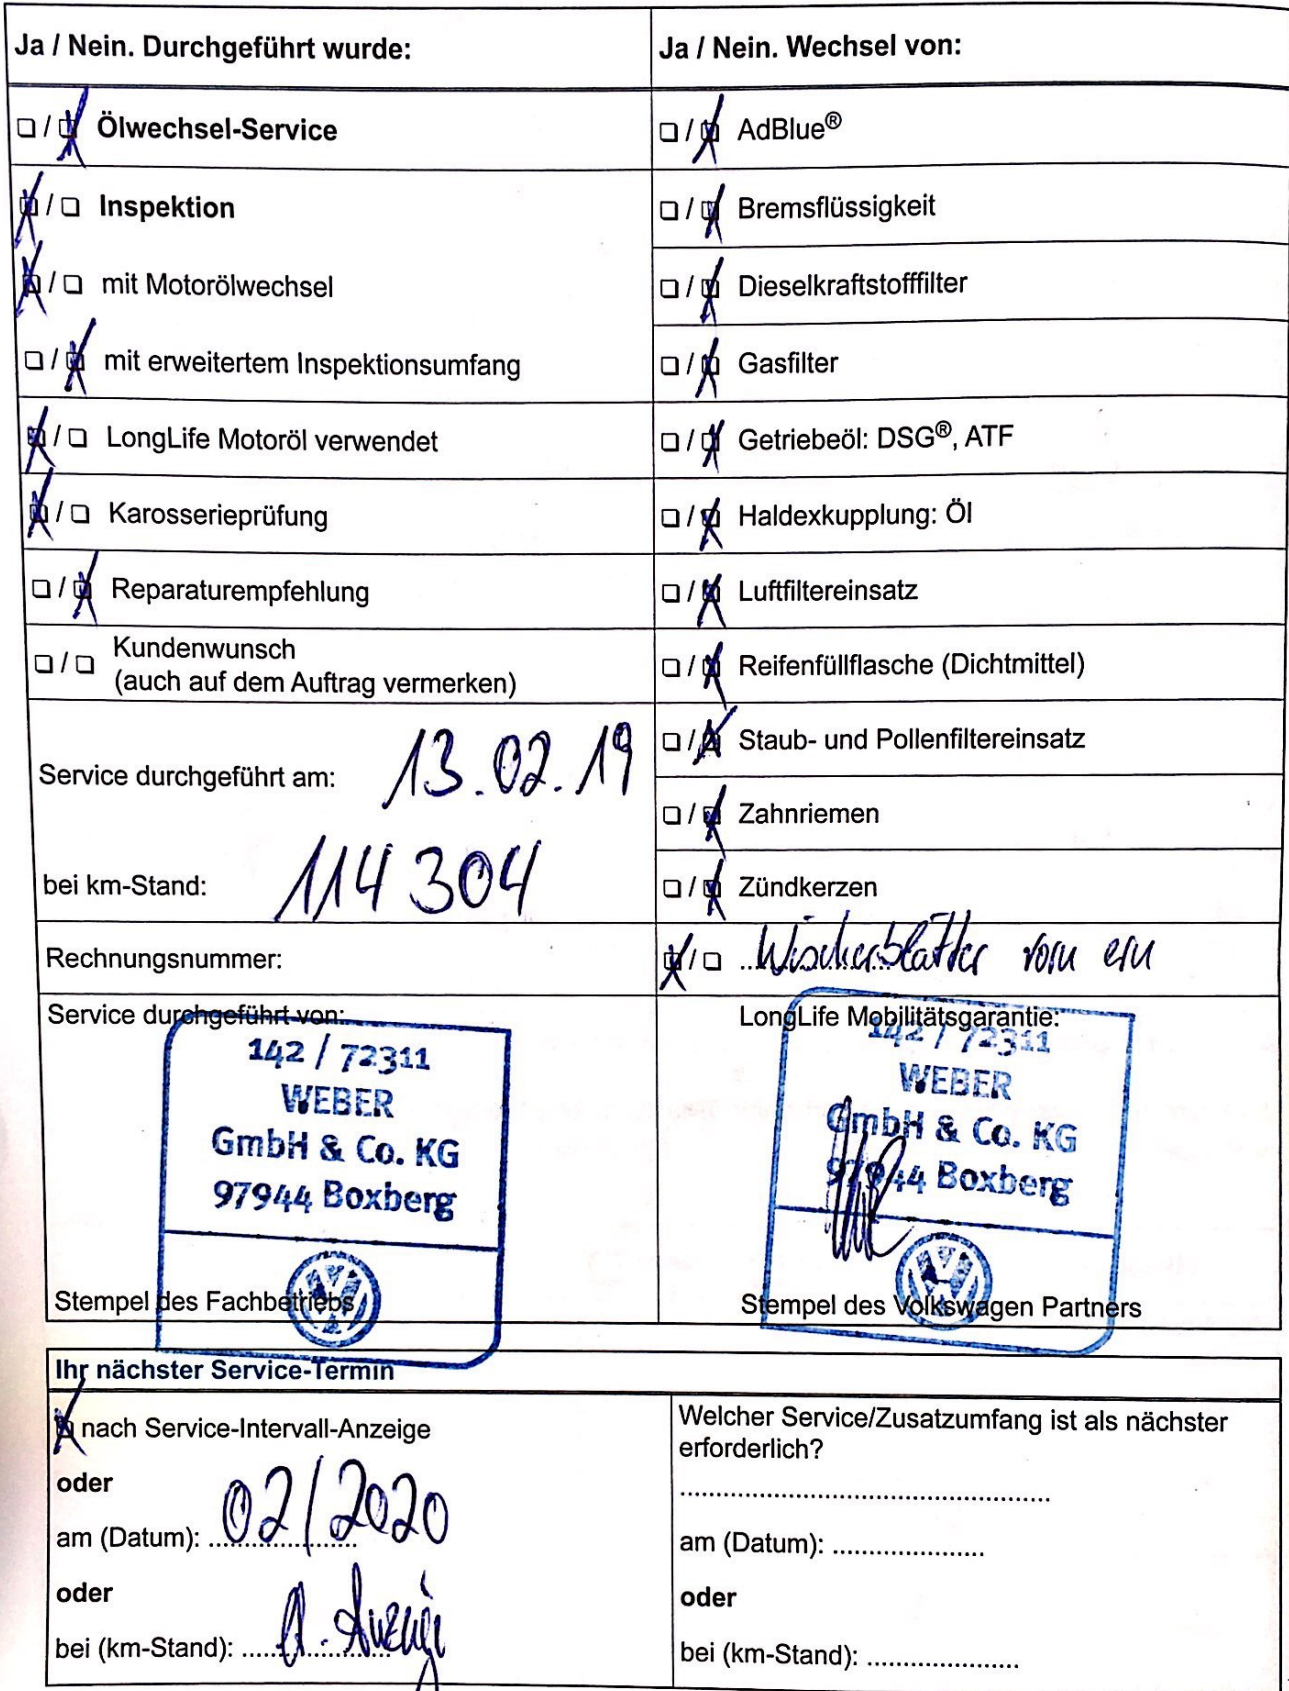 Ja / Nein. Durchgeführt wurde:
☐ / ☒ Ölwechsel-Service
☒ / ☐ Inspektion
☒ / ☐ mit Motorölwechsel
☐ / ☒ mit erweitertem Inspektionsumfang
☒ / ☐ LongLife Motoröl verwendet
☒ / ☐ Karosserieprüfung
☐ / ☒ Reparaturempfehlung
☐ / ☐ Kundenwunsch
(auch auf dem Auftrag vermerken)
Service durchgeführt am: 13.02.19
bei km-Stand: 114 304
Rechnungsnummer:
Service durchgeführt von:
142 / 72311
WEBER
GmbH & Co. KG
97944 Boxberg
Stempel des Fachbetriebs
Ja / Nein. Wechsel von:
☐ / ☒ AdBlue®
☐ / ☒ Bremsflüssigkeit
☐ / ☒ Dieselkraftstofffilter
☐ / ☒ Gasfilter
☐ / ☒ Getriebeöl: DSG®, ATF
☐ / ☒ Haldexkupplung: Öl
☐ / ☒ Luftfiltereinsatz
☐ / ☒ Reifenfüllflasche (Dichtmittel)
☐ / ☒ Staub- und Pollenfiltereinsatz
☐ / ☒ Zahnriemen
☐ / ☒ Zündkerzen
☒ / ☐ Wischerblätter vorn ern
LongLife Mobilitätsgarantie:
142 / 72311
WEBER
GmbH & Co. KG
97944 Boxberg
Stempel des Volkswagen Partners
Ihr nächster Service-Termin
☒ nach Service-Intervall-Anzeige
oder
am (Datum): 02/2020
oder
bei (km-Stand):
Welcher Service/Zusatzumfang ist als nächster
erforderlich?
am (Datum): .....................
oder
bei (km-Stand): .....................